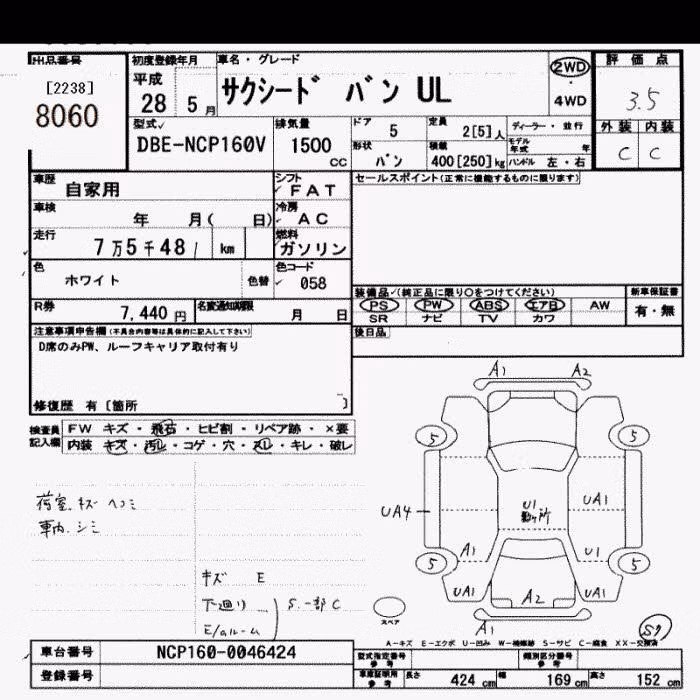 出品番号
[2238]
8060
初度登録年月
平成
28 5 月
車名・グレード
サクシード バン UL
2WD
・
4WD
評価点
3.5
外装 内装
C C
型式
DBE-NCP160V
排気量
1500 CC
ドア
5
定員
2[5]人
ディーラー・並行
形状
バン
積載
400[250]kg
モデル年式 年
ハンドル 左・右
車歴
自家用
シフト
FAT
セールスポイント(正常に機能するものに限ります)
車検
年 月( 日)
冷房
AC
走行
7万5千481 km
燃料
ガソリン
色
ホワイト
色替
色コード
058
R券
7,440 円
名変通知期限
月 日
装備品(純正品に限り○をつけてください)
新車保証書
PS PW ABS エアB AW
SR ナビ TV カワ
有・無
後日品
注意事項申告欄(不具合内容等は具体的に記入して下さい)
D席のみPW、ルーフキャリア取付有り
修復歴 有〔箇所 〕
検査員記入欄
FW キズ・飛石・ヒビ割・リペア跡・×要
内装 キズ・汚レ・コゲ・穴・スレ・キレ・破レ
荷室.キズ ヘコミ
車内.シミ
キズ E
下廻り
S.一部C
E/gルーム
A1 A2
5 5
UA4
U1
UA1
A1
U1
5 5
UA1
A2
UA1
A1
スペア
A-キズ E-エクボ U-凹み W-補修跡 S-サビ C-腐食 XX-交換済
車台番号
NCP160-0046424
登録番号
型式指定番号
参考
類別区分番号
参考
車庫証明用
参考
長さ 424 cm
幅 169 cm
高さ 152 cm